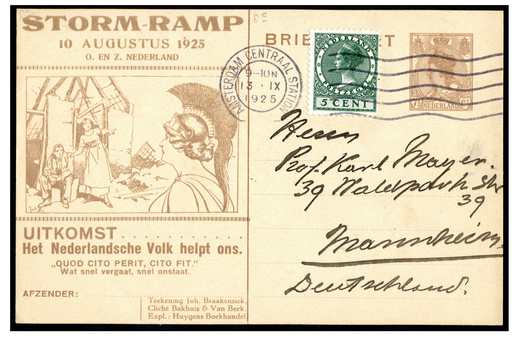 STORM-RAMP
10 AUGUSTUS 1925
O. EN Z. NEDERLAND
BRIE
AMSTERDAM CENTRAAL STATION
9-10N
13 · IX
1925
5 CENT
NEDERLAND
Herrn
Prof. Karl Mayer.
39 Waldpark Str
39
Mannheim
Deutschland.
UITKOMST
Het Nederlandsche Volk helpt ons.
„QUOD CITO PERIT, CITO FIT.”
Wat snel vergaat, snel onstaat.
AFZENDER:
Teekening Joh. Braakensiek.
Cliché Bakhuis & Van Beek.
Expl.: Huygens Boekhandel.